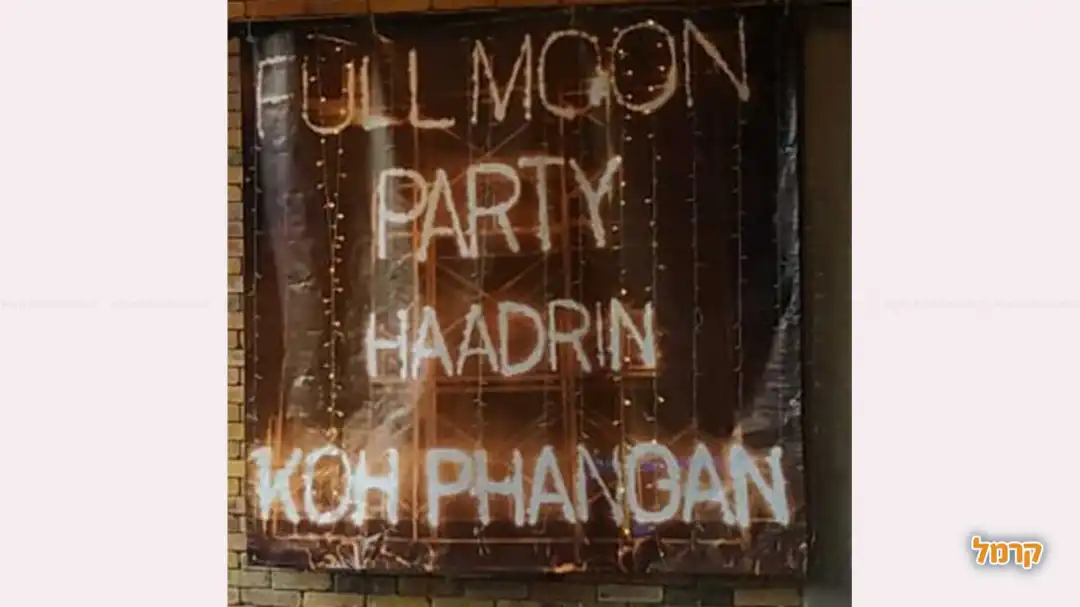 FULL MOON
PARTY
HAADRIN
KOH PHANGAN
קרמל